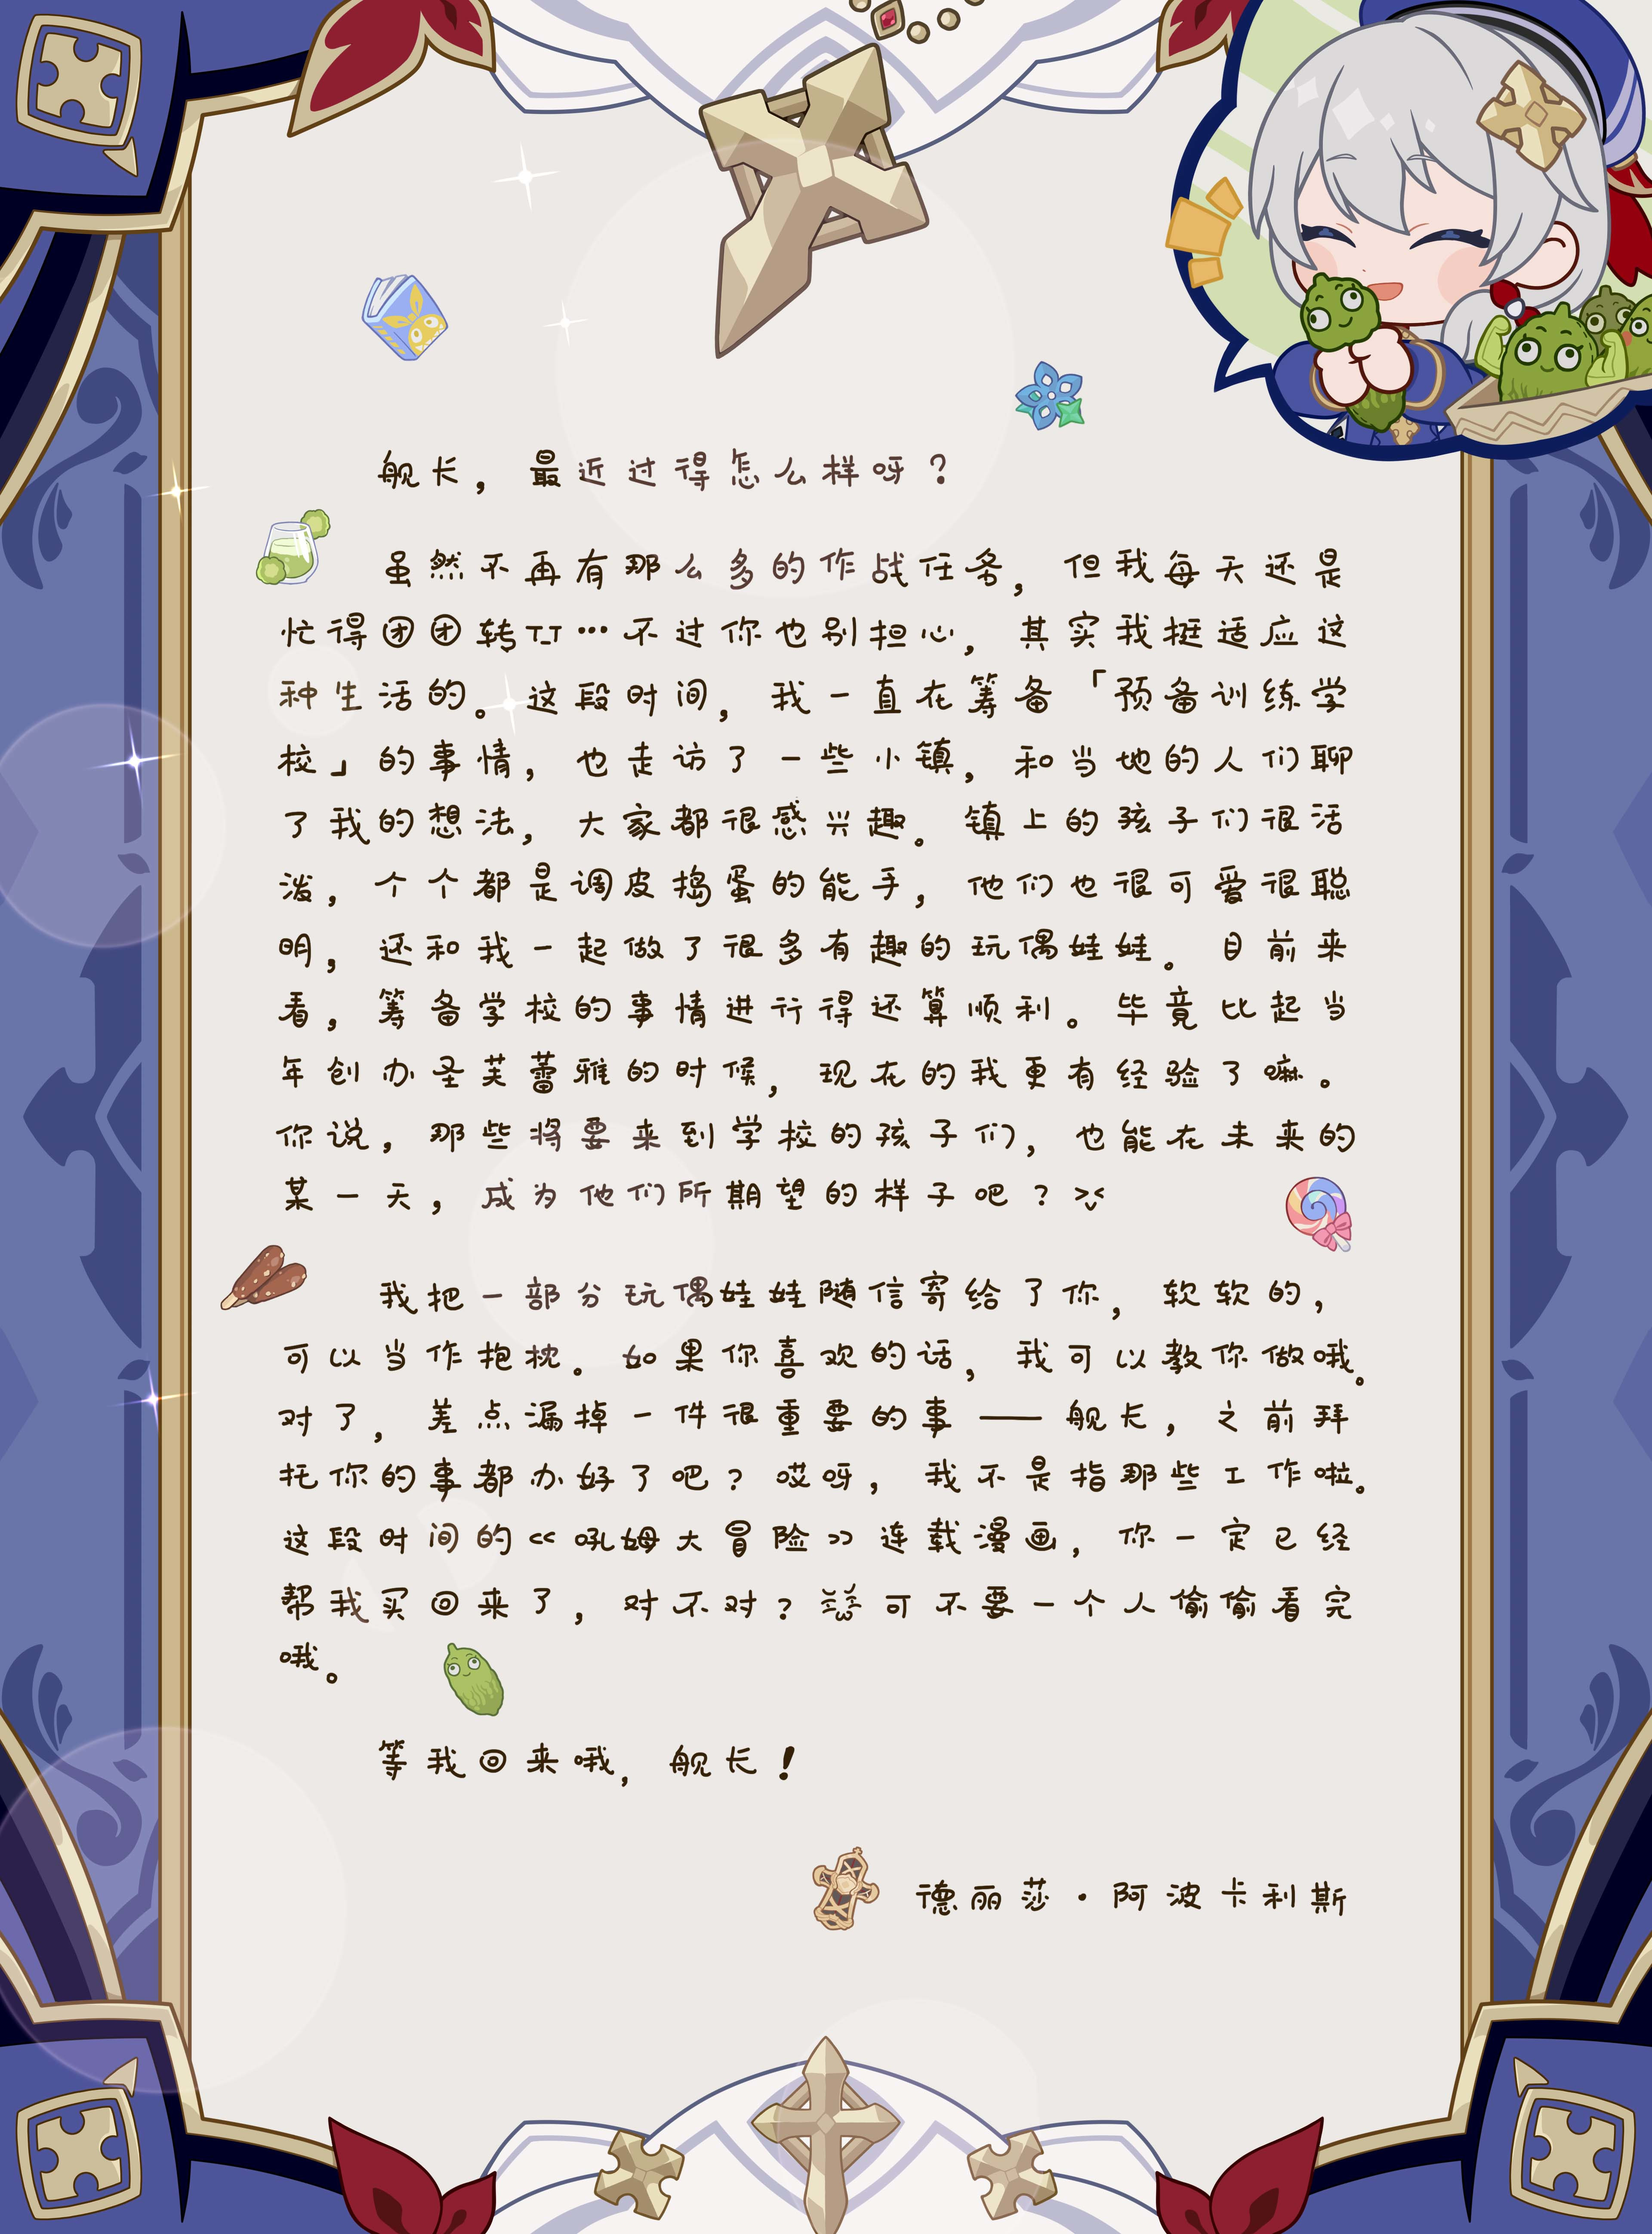 舰长，最近过得怎么样呀？
虽然不再有那么多的作战任务，但我每天还是
忙得团团转TT…不过你也别担心，其实我挺适应这
种生活的。这段时间，我一直在筹备「预备训练学
校」的事情，也走访了一些小镇，和当地的人们聊
了我的想法，大家都很感兴趣。镇上的孩子们很活
泼，个个都是调皮捣蛋的能手，他们也很可爱很聪
明，还和我一起做了很多有趣的玩偶娃娃。目前来
看，筹备学校的事情进行得还算顺利。毕竟比起当
年创办圣芙蕾雅的时候，现在的我更有经验了嘛。
你说，那些将要来到学校的孩子们，也能在未来的
某一天，成为他们所期望的样子吧？><
我把一部分玩偶娃娃随信寄给了你，软软的，
可以当作抱枕。如果你喜欢的话，我可以教你做哦。
对了，差点漏掉一件很重要的事——舰长，之前拜
托你的事都办好了吧？哎呀，我不是指那些工作啦。
这段时间的《吼姆大冒险》连载漫画，你一定已经
帮我买回来了，对不对？可不要一个人偷偷看完
哦。
等我回来哦，舰长！
德丽莎·阿波卡利斯